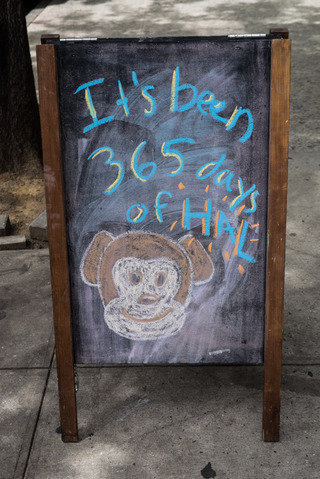 It's been
365 days
of HAL